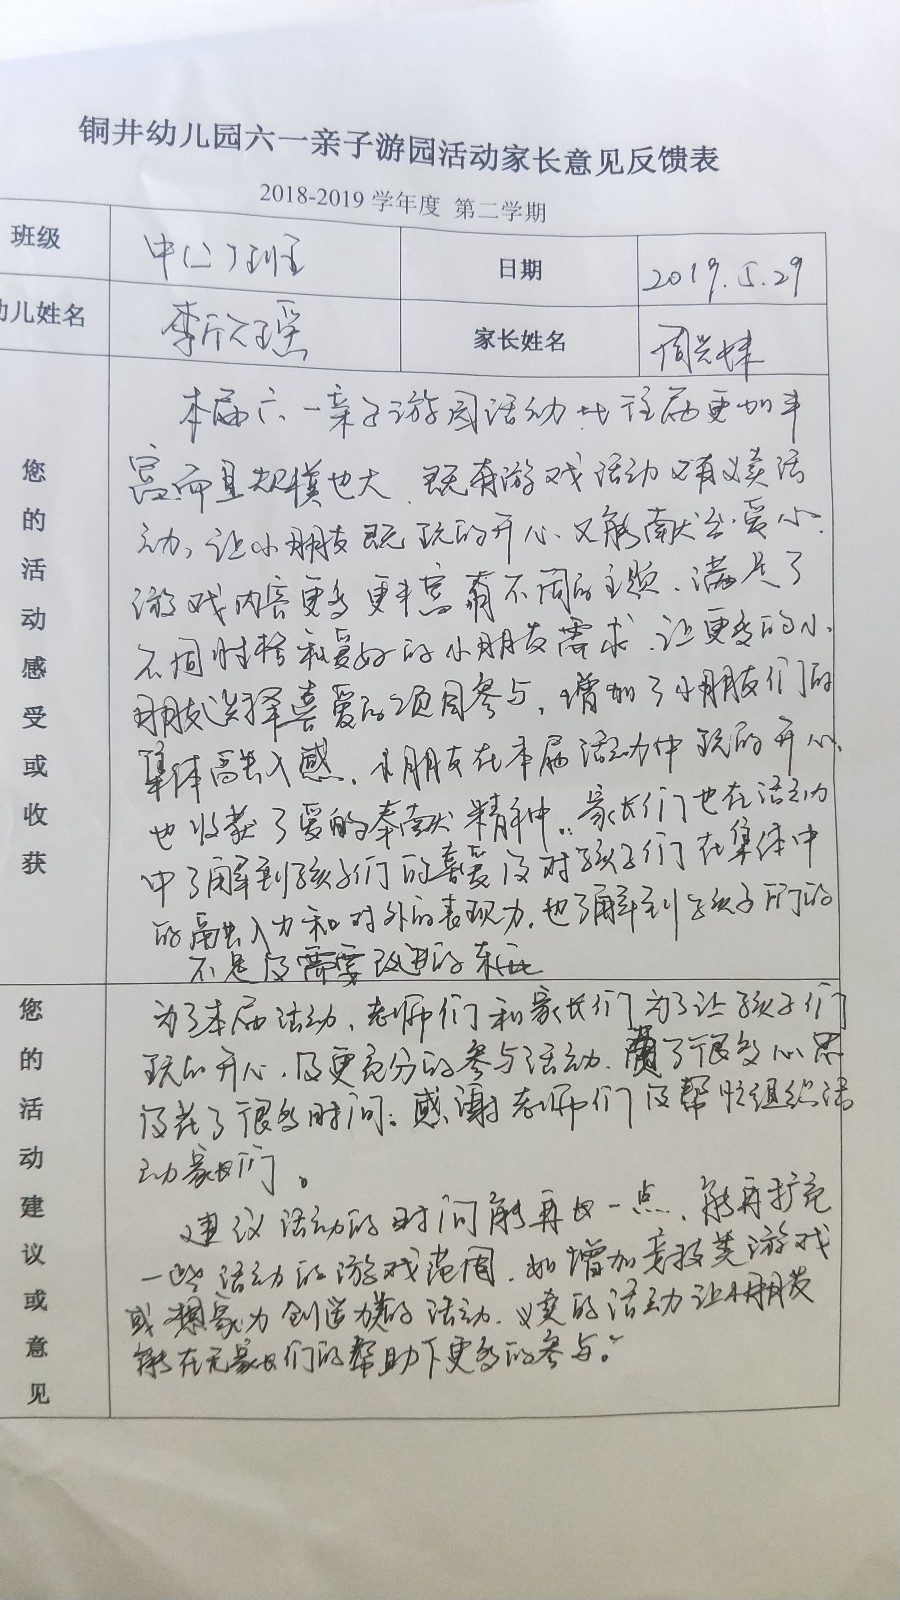 铜井幼儿园六一亲子游园活动家长意见反馈表
2018-2019 学年度 第二学期
班级 中(二)班 日期 2019.5.29
幼儿姓名 李欣瑶 家长姓名 周兴妹
您的活动感受或收获
本届六一亲子游园活动比往届更加丰
富而且规模也大、既有游戏活动又有义卖活
动,让小朋友既玩的开心、又能献出爱心.
游戏内容更多更丰富有不同的主题、满足了
不同性格和爱好的小朋友需求、让更多的小
朋友选择喜爱的项目参与,增加了小朋友们的
集体融入感、小朋友在本届活动中玩的开心、
也收获了爱的奉献精神.家长们也在活动
中了解到孩子们的喜爱及对孩子们在集体中
的融入力和对外的表现力,也了解到孩子们的
不足及需要改进的
您的活动建议或意见
为了本届活动、老师们和家长们为了让孩子们
玩的开心、及更充分的参与活动、费了很多心思
及花了很多时间。感谢老师们及帮忙组织活
动家长们。
建议活动的时间能再长一点、能再扩充
一些活动的游戏范围、如增加竞技类游戏
或想象力创造力类的活动、义卖的活动让小朋友
能在无家长们的帮助下更多的参与。